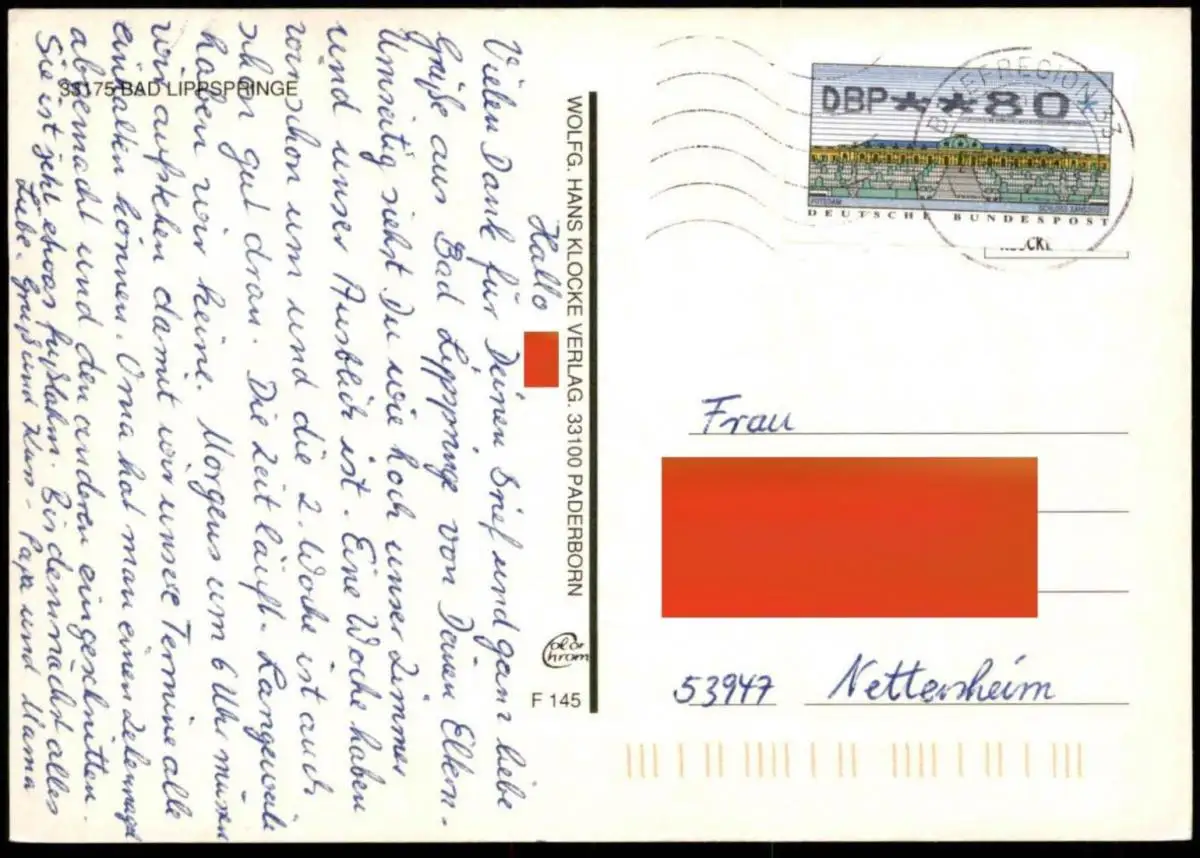 33175 BAD LIPPSPRINGE
Hallo
Vielen Dank für Deinen Brief und ganz liebe
Grüße aus Bad Lippspringe von Deinen Eltern.
Umseitig siehst Du wie hoch unser Zimmer
und unser Ausblick ist. Eine Woche haben
wir schon um und die 2. Woche ist auch
schon gut dran. Die Zeit läuft. Langeweile
haben wir keine. Morgens um 6 Uhr müssen
wir aufstehen damit wir unsere Termine alle
einhalten können. Oma hat man einen Zehennagel
abgemacht und den anderen eingeschnitten.
Sie ist jetzt etwas fußlahm. Bis demnächst alles
Liebe. Gruß und Kuss - Papa und Mama
WOLFG. HANS KLOCKE VERLAG. 33100 PADERBORN
color
chrom
F 145
DBP**80*
POTSDAM SCHLOSS SANSSOUCI
DEUTSCHE BUNDESPOST
BRIEFREGION 33
Frau
53947 Nettersheim